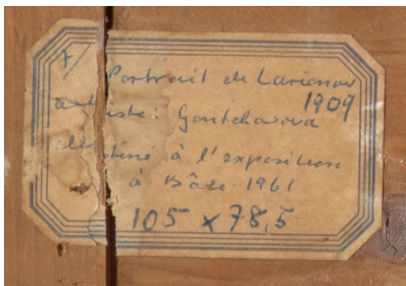 7/ Portrait de Larionov
1909
artiste: Gontcharova
destiné à l'exposition
à Bâle 1961
105 x 78,5